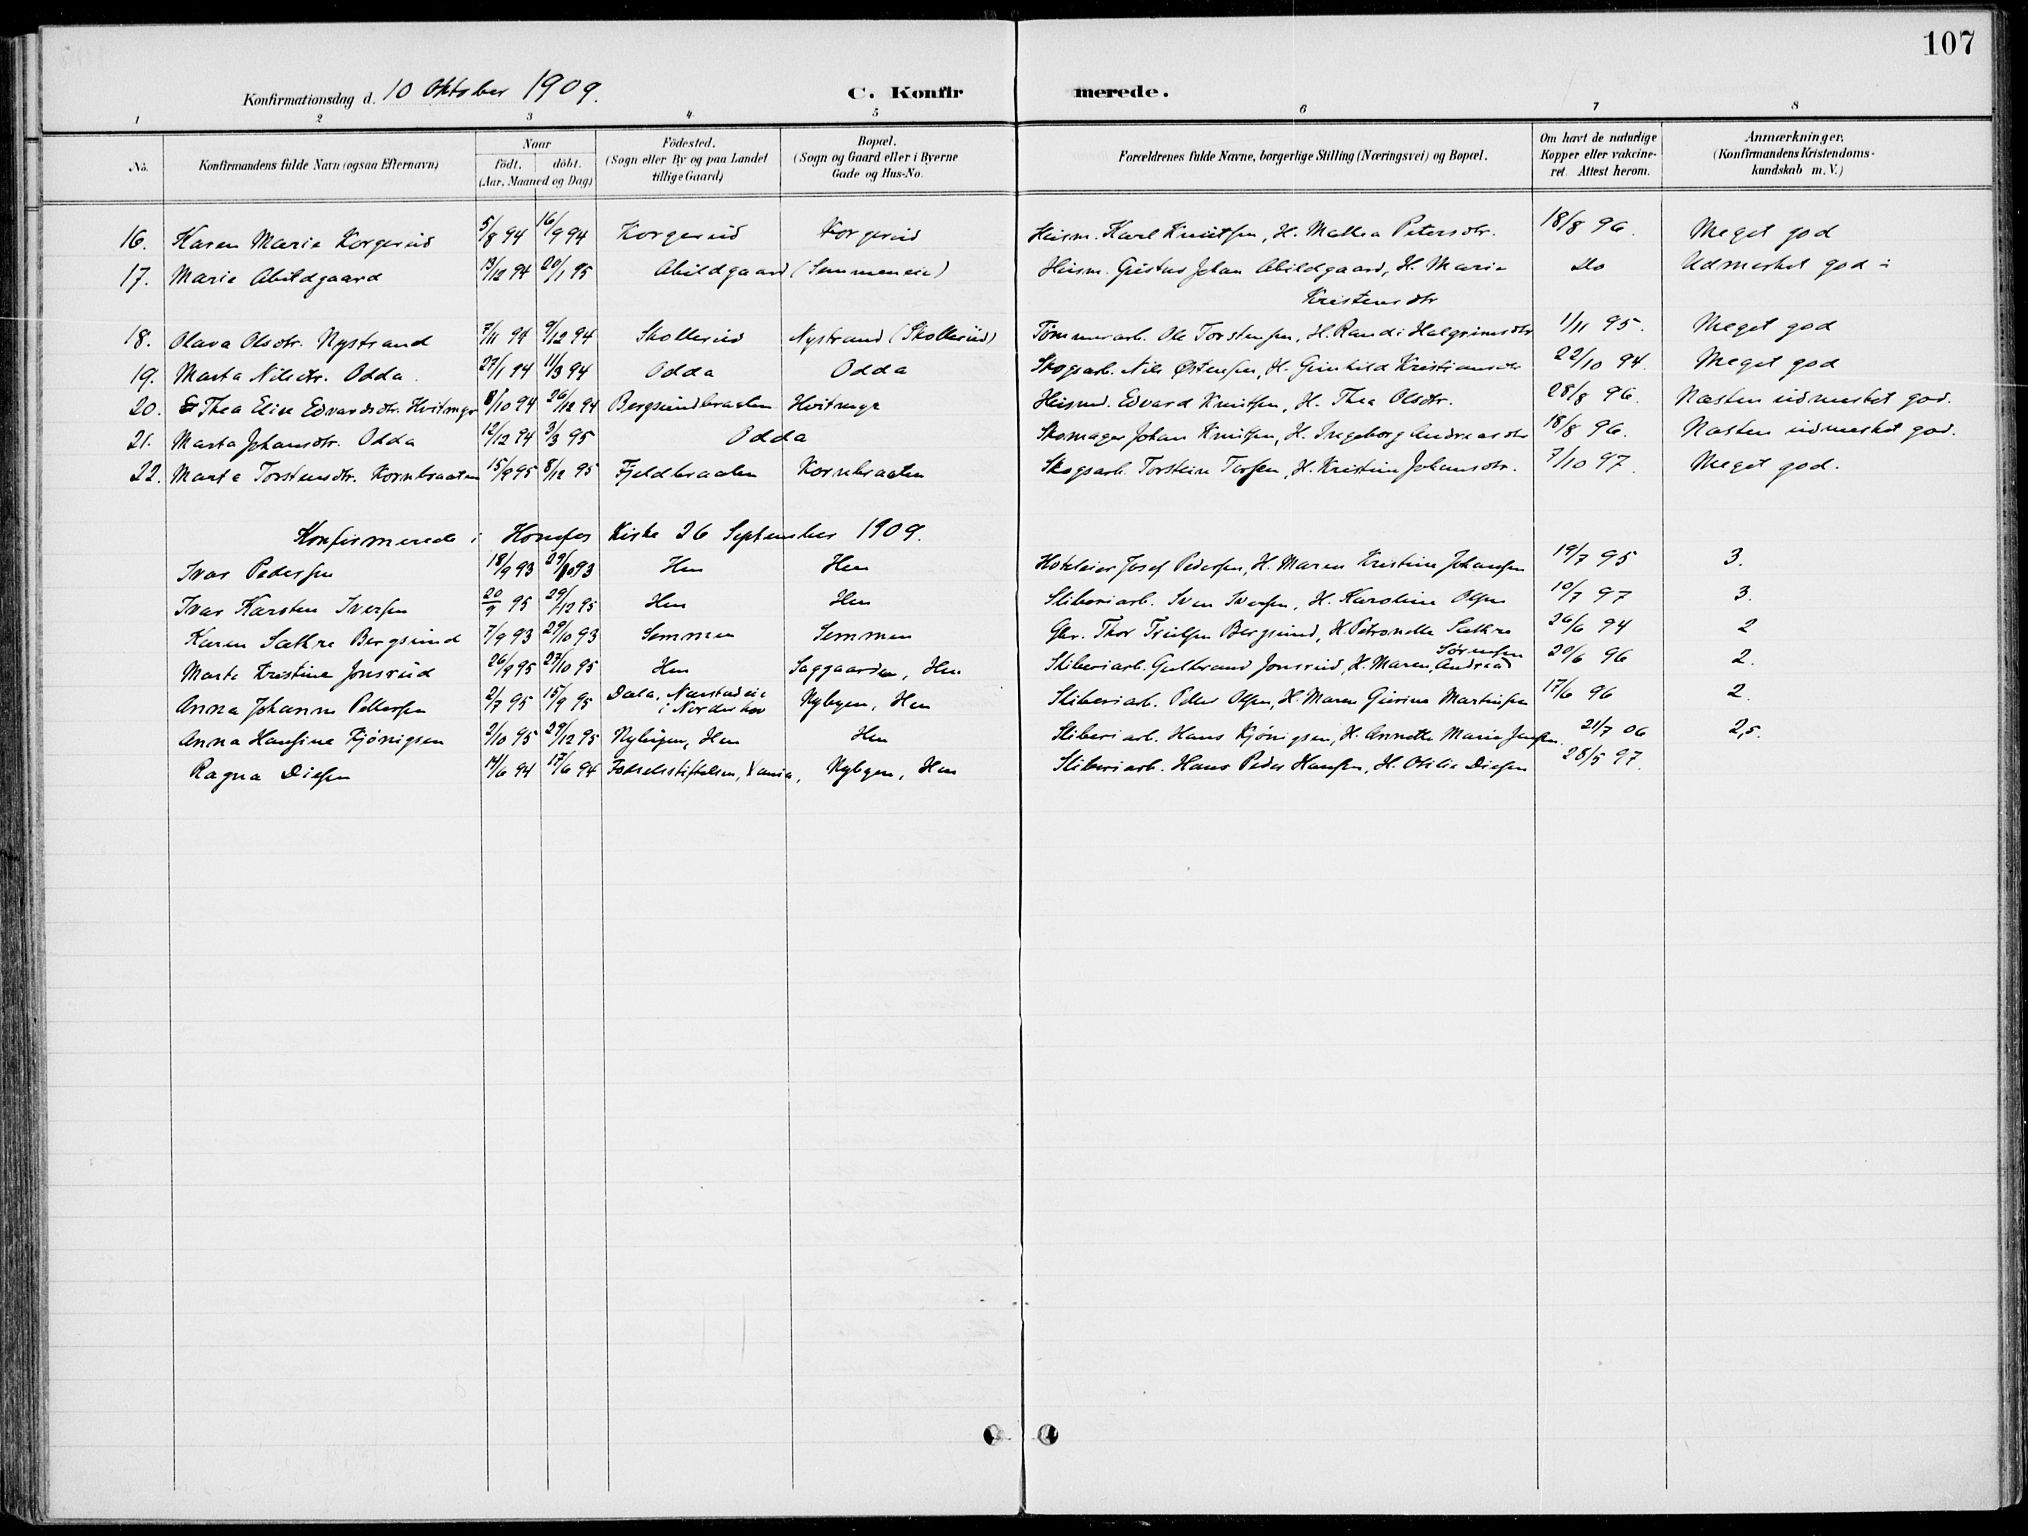 107
Konfirmationsdag d. 10 Oktober 1909.
C. Konfirmerede.
1 2 3 4 5 6 7 8
No. Konfirmandens fulde Navn (ogsaa Efternavn) Naar født. døbt. (Aar, Maaned og Dag) Födested. (Sogn eller By og paa Landet tillige Gaard) Bopæl. (Sogn og Gaard eller i Byerne Gade og Hus-No. Forældrenes fulde Navne, borgerlige Stilling (Næringsvei) og Bopæl. Om havt de naturlige Kopper eller vakcineret. Attest herom. Anmærkninger, (Konfirmandens Kristendomskundskab m. V.)
16. Karen Marie Korgerud 5/8 94 16/9 94 Korgerud Korgerud Husm. Karl Knutsen, H. Mathea Petersdtr. 18/8 96. Meget god
17. Marie Abildgaard 13/12 94 20/1 95 Abildgaard (Semmeneie) Husm. Gustav Johan Abildgaard, H. Marie Do Udmerket god
Kristensdtr
18. Olava Olsdtr. Nystrand 7/11 94 9/12 94 Skollerud Nystrand (Skollerud) Tømmerarb. Ole Torstensen, H. Randi Halgrimsdtr 1/11 95. Meget god
19. Marta Nilsdtr. Odda. 27/1 94 11/3 94 Odda Odda Skogsarb. Nils Østensen, H. Gunhild Kristiansdtr 22/10 94. Meget god
20. Thea Elise Edvardsdtr. Hvitmyr 8/10 94 26/12 94 Bergsundbraaten Hvitmyr Husmd. Edvard Knutsen, H. Thea Olsdtr. 28/8 96. Næsten udmerket god.
21. Marta Johansdtr. Odda 12/12 94 3/3 95 Odda Skomager Johan Knutsen, H. Ingeborg Andreasdtr 18/8 96. Næsten udmerket god.
22. Marta Torstensdtr. Kornbraaten 15/9 95 8/12 95 Fjeldbraaten Kornbraaten Skogsarb. Torstein Torsen, H. Kristine Johansdtr. 7/10 97. Meget god.
Konfirmerede i Honefos Kirke 26 September 1909.
Ivar Pedersen 18/9 93 29/10 93 Hen Hen Hoteleier Josef Pedersen, H. Maren Kristine Johansen 19/7 95 3.
Ivar Karsten Iversen 20/9 95 29/12 95 Hen Hen Sliberiarb. Sven Iversen, H. Karoline Olsen 10/7 97 3.
Karen Sæthre Bergsund 7/9 93 29/10 93 Semmen Semmen Gbr. Thor Trulsen Bergsund, H. Petronelle Sæthre 26/6 94 2
Marte Kristine Jonsrud 26/9 95 27/10 95 Hen Saggaarden, Hen Sliberiarb. Gulbrand Jonsrud, H. Maren Andrea Sørensen 20/6 96 2.
Anna Johanne Pettersen 2/7 95 15/9 95 Dala, i Norderhov Nybyen, Hen Sliberiarb. Peder Olsen, H. Maren Gurine Martinsen 17/6 96 2.
Anna Hansine Kjønigsen 2/10 95 29/12 95 Nybyen, Hen Hen Sliberiarb. Hans Kjønigsen, H. Annette Marie Jensen. 21/7 06 2,5.
Ragna Diesen 14/6 94 17/6 94 Fødselsstiftelsen, Xania, Nybyen, Hen Sliberiarb. Hans Peder Hansen, H. Otilie Diesen 28/5 97.